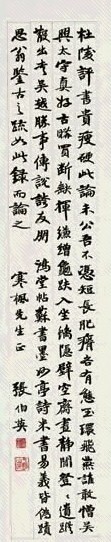 杜陵評書貴瘦硬此論未公吾不憑短長肥瘠各有態玉環飛燕誰敢憎吳
興太守真好古購買斷缺揮縑繒龜趺入座螭隱壁空齋晝靜聞登登遺
散出走吳越勝事傳說誇友朋 鴻堂帖蘇書墨妙亭詩米書易義皆偽蹟
思翁鑒古之疏如此錄而論之 寒楓先生正 張伯英